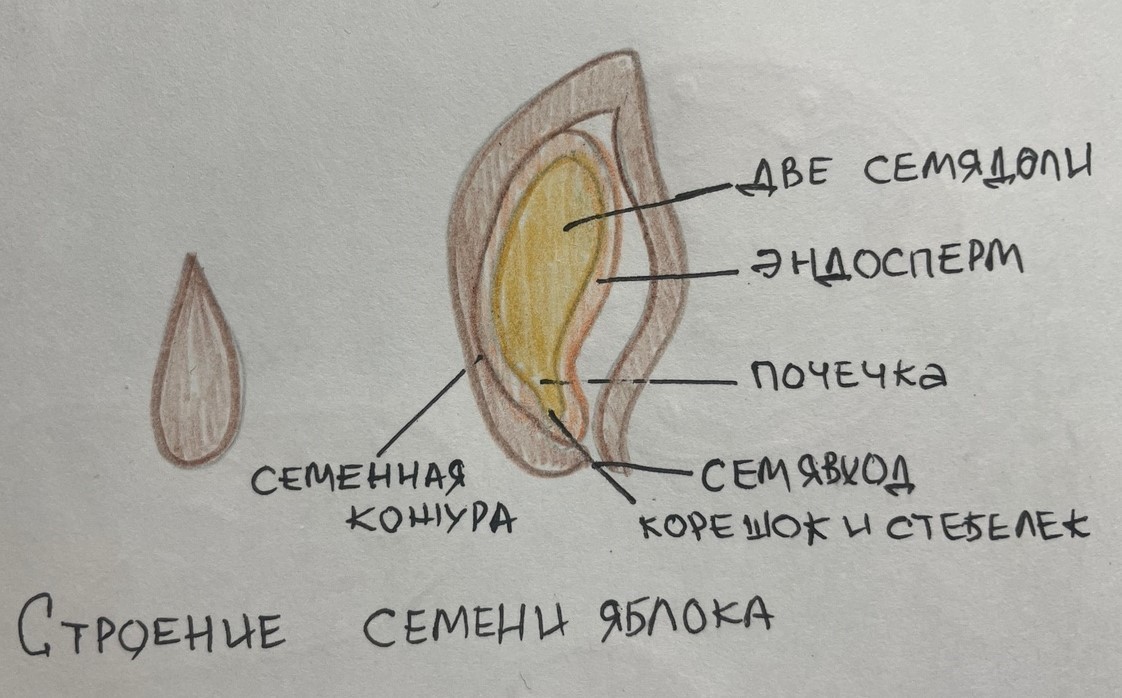 ДВЕ СЕМЯДОЛИ
ЭНДОСПЕРМ
ПОЧЕЧКА
СЕМЕННАЯ
КОЖУРА
СЕМЯВХОД
КОРЕШОК И СТЕБЕЛЕК
СТРОЕНИЕ СЕМЕНИ ЯБЛОКА